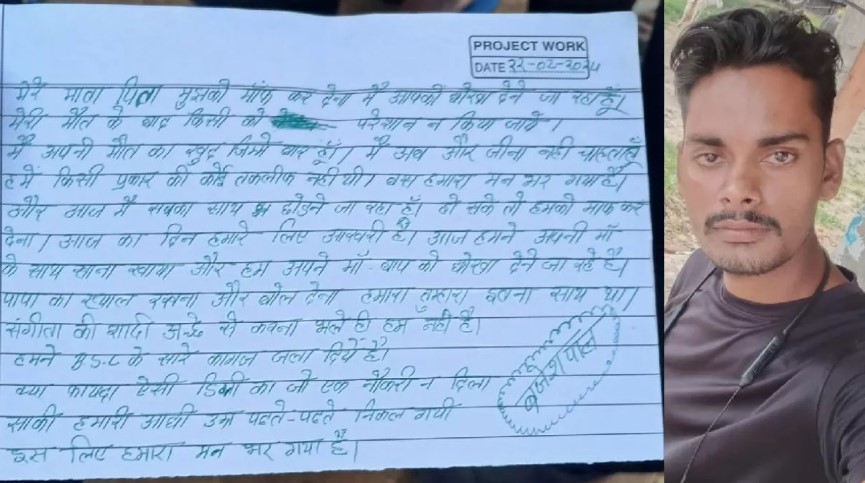 PROJECT WORK
DATE 22-02-2024
मेरे माता पिता मुझको माफ कर देना मैं आपको धोखा देने जा रहा हूँ।
मेरी मौत के बाद किसी को परेशान न किया जाये।
मैं अपनी मौत का खुद जिम्मेवार हूँ। मैं अब और जीना नही चाहता हूँ
हमें किसी प्रकार की कोई तकलीफ नही थी। बस हमारा मन भर गया है।
और आज मैं सबका साथ छोडने जा रहा हूँ। हो सके तो हमको माफ कर
देना। आज का दिन हमारे लिए आखरी है। आज हमने अपनी माँ
के साथ खाना खाया और हम अपने माँ-बाप को धोखा देने जा रहे है।
पापा का ख्याल रखना और बोल देना हमारा तुम्हारा इतना साथ था।
संगीता की शादी अच्छे से करना भले ही हम नही है।
हमने BS-C के सारे कागज जला दिये है।
क्या फायदा ऐसी डिग्री का जो एक नौकरी न दिला
साकी हमारी आधी उम्र पढते-पढते निकल गयी
इस लिए हमारा मन भर गया है।
बृजेश पाल